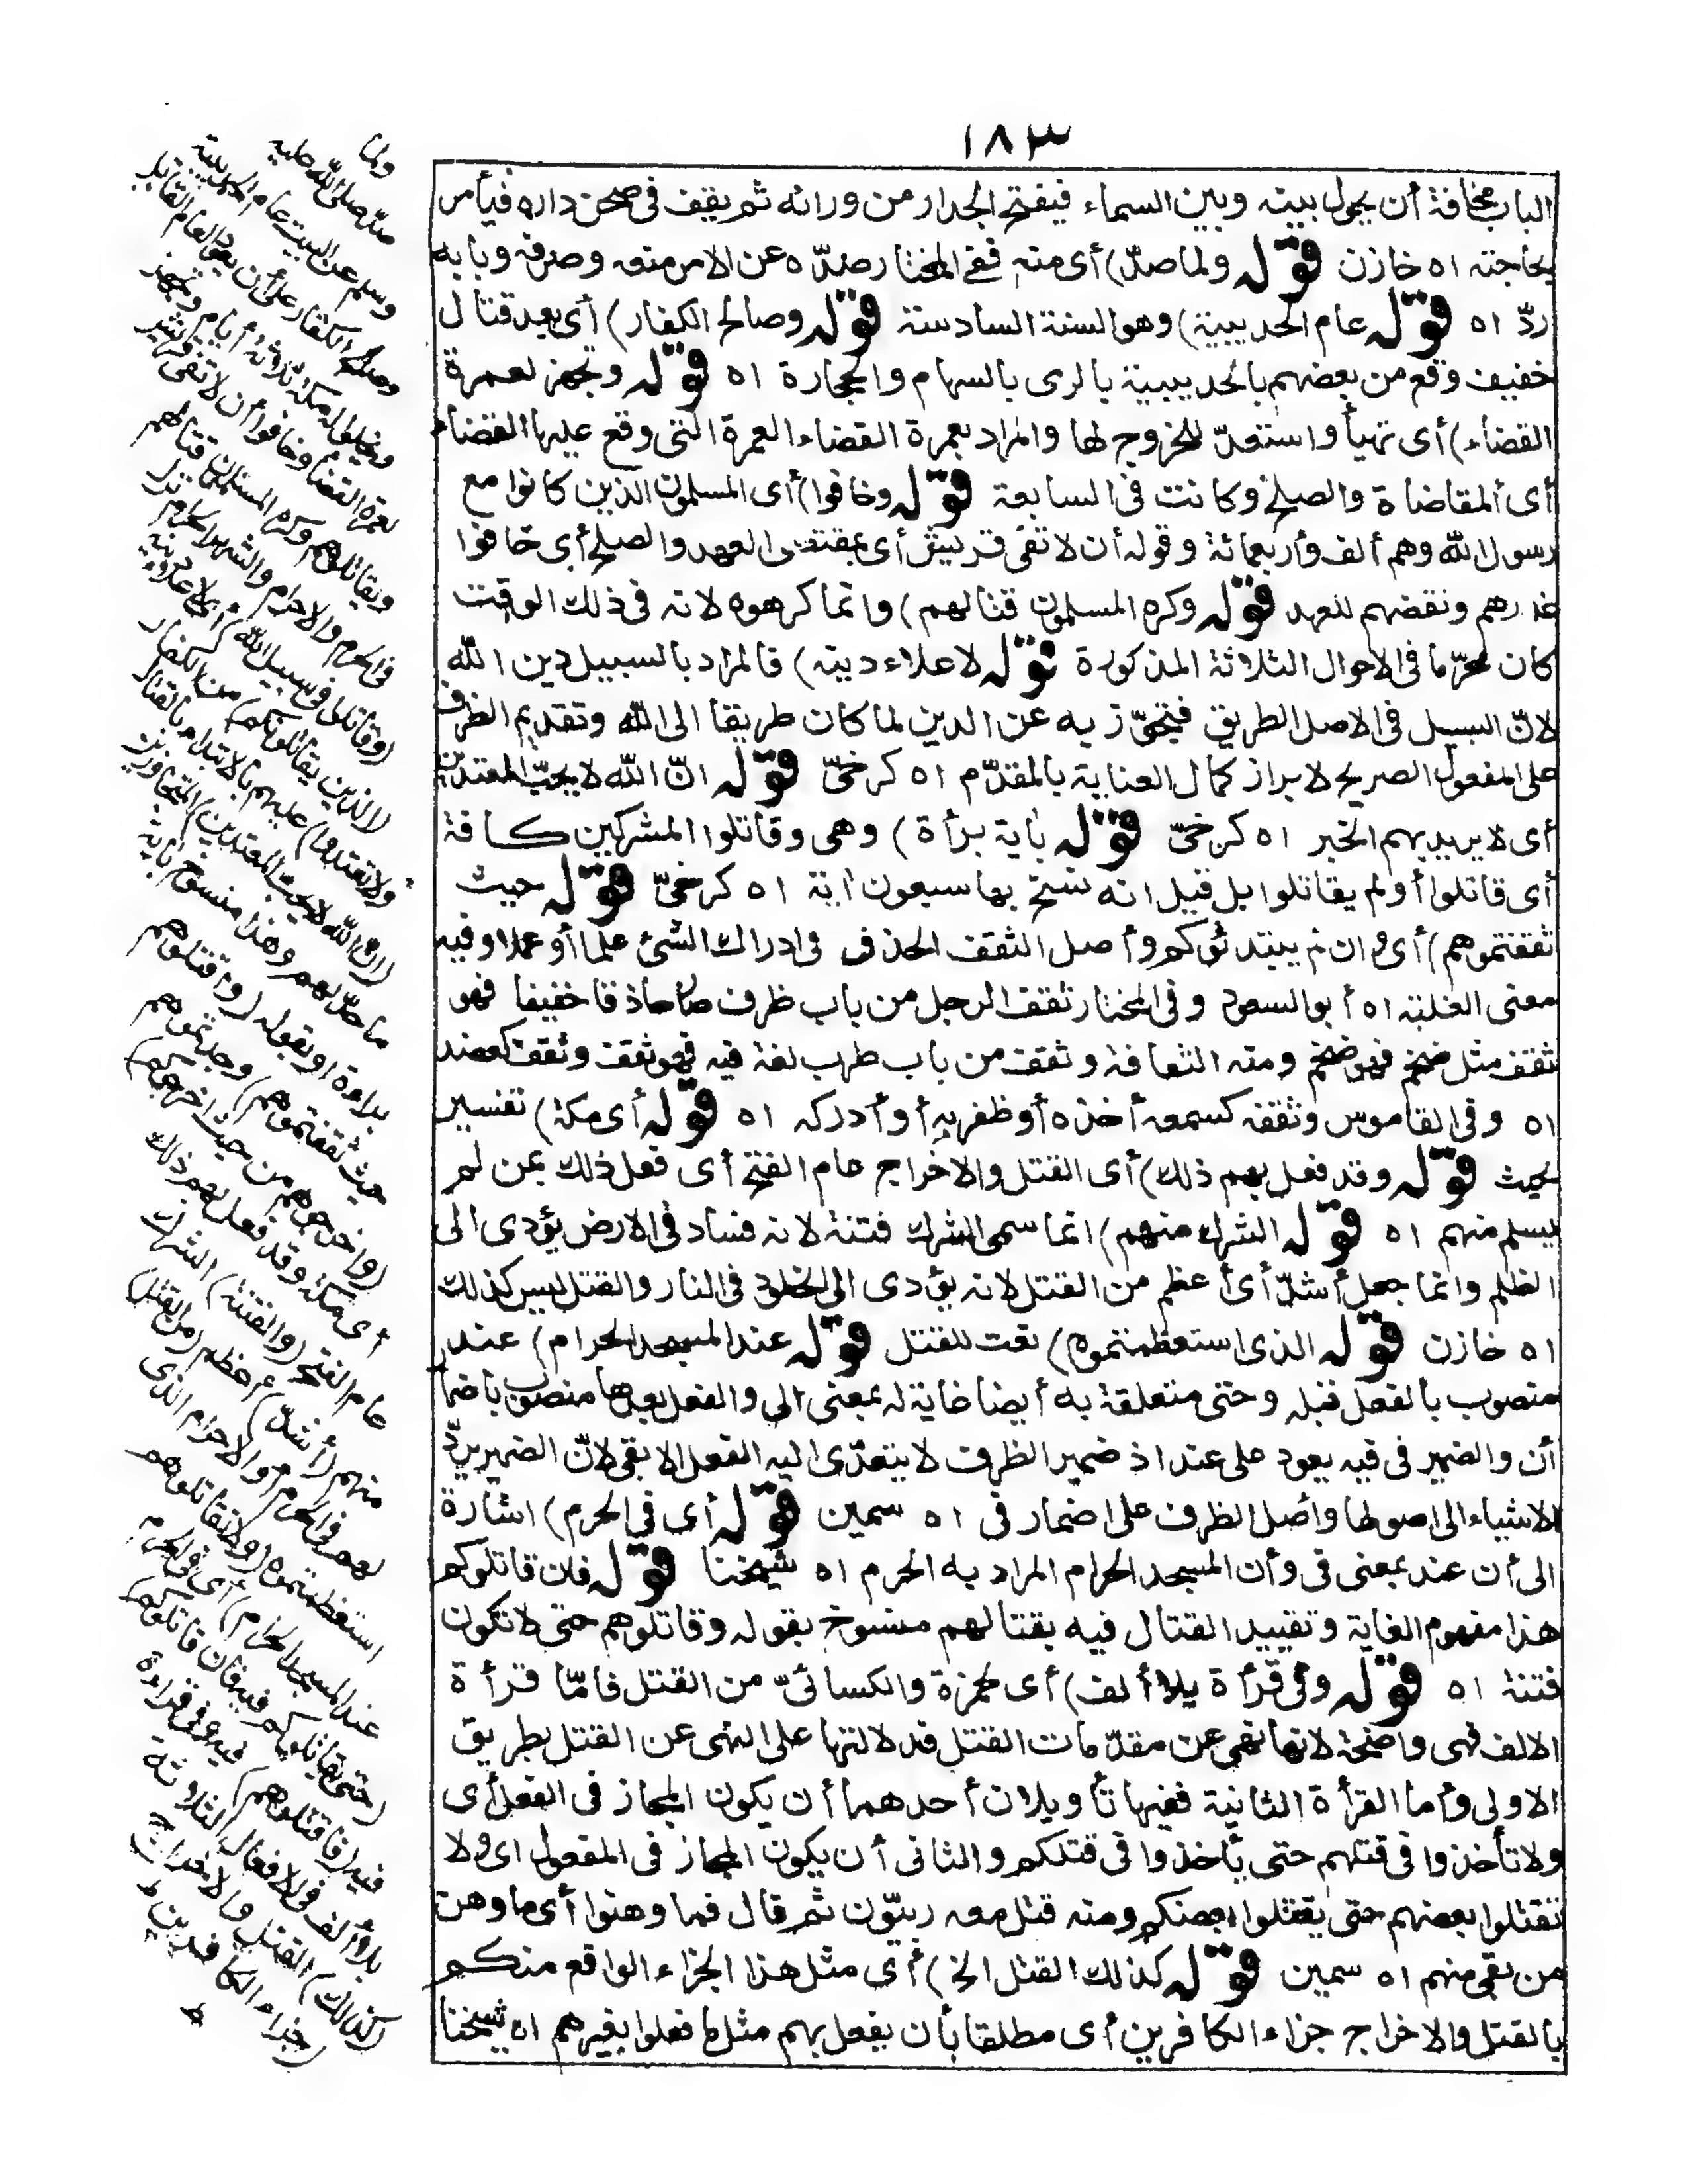 ١٨٣
الباب مخافة أن يحول بينه وبين السماء فيفتح الجدار من ورائه ثم يقف فى صحن داره فيأمر
بحاجته اه خازن قوله ولما صدّ) أى منع ففى المختار صدّه عن الامر منعه وصرفه وبابه
ردّ اه قوله عام الحديبية) وهو السنة السادسة قوله وصالح الكفار) أى بعد قتال
خفيف وقع من بعضهم بالحديبية بالرمى بالسهام والحجارة اه قوله وتجهز لعمرة
القضاء) أى تهيأ واستعدّ للخروج لها والمراد بعمرة القضاء العمرة التى وقع عليها القضاء
أى المقاضاة والصلح وكانت فى السابعة قوله وخافوا) أى المسلمون الذين كانوا مع
رسول الله وهم ألف وأربعمائة وقوله أن لا تفى قريش أى بمقتضى العهد والصلح أى خافوا
غدرهم ونقضهم للعهد قوله وكره المسلمون قتالهم) وانما كرهوه لانه فى ذلك الوقت
كان محرّما فى الاحوال الثلاثة المذكورة قوله لاعلاء دينه) فالمراد بالسبيل دين الله
لانّ السبيل فى الاصل الطريق فتجوّز به عن الدين لما كان طريقا الى الله وتقديم الظرف
على المفعول الصريح لابراز كمال العناية بالمقدّم اه كرخىّ قوله انّ الله لا يحبّ المعتدين
أى لا يريد بهم الخير اه كرخىّ قوله بأية برأة) وهى وقاتلوا المشركين كافة
أى قاتلوا أولم يقاتلوا بل قيل انه نسخ بها سبعون آية اه كرخىّ قوله حيث
ثقفتموهم) أى وان لم يبتدئوكم وأصل الثقف الحذق فى ادراك الشئ علما أو عملا وفيه
معنى الغلبة اه أبو السعود وفى المختار ثقف الرجل من باب ظرف صار حاذقا خفيفا فهو
ثقف مثل ضخم فهو ضخم ومنه الثقافة وثقف من باب طرب لغة فيه فهو ثقف وثقف كعضد
اه وفى القاموس وثقفه كسمعه أخذه أو ظفر به أو أدركه اه قوله أى مكة) تفسير
لحيث قوله وقد فعل بهم ذلك) أى القتل والاخراج عام الفتح أى فعل ذلك بمن لم
يسلم منهم اه قوله الشرك منهم) انما سمى الشرك فتنة لانه فساد فى الارض يؤدى الى
الظلم وانما جعل أشدّ أى أعظم من القتل لانه يؤدى الى الخلود فى النار والقتل ليس كذلك
اه خازن قوله الذى استعظمتموه) نعت للقتل قوله عند المسجد الحرام) عند
منصوب بالفعل قبله وحتى متعلقة به أيضا غاية له بمعنى الى والفعل بعدها منصوب باضمار
أن والضمير فى فيه يعود على عند اذ ضمير الظرف لا يتعدّى اليه الفعل الا بفى لانّ الضمير يردّ
الاشياء الى اصولها وأصل الظرف على اضمار فى اه سمين قوله أى فى الحرم) اشارة
الى أن عند بمعنى فى وأن المسجد الحرام المراد به الحرم اه شيخنا قوله فان قاتلوكم
هذا مفهوم الغاية وتقييد القتال فيه بقتالهم منسوخ بقوله وقاتلوهم حتى لا تكون
فتنة اه قوله وفى قرأة بلا ألف) أى لحمزة والكسائىّ من القتل فامّا قرأة
الالف فهى واضحة لانها نهى عن مقدّمات القتل فدلالتها على النهى عن القتل بطريق
الاولى وأما القرأة الثانية ففيها تأويلان أحدهما أن يكون المجاز فى الفعل أى
ولا تأخذوا فى قتلهم حتى يأخذوا فى قتلكم والثانى أن يكون المجاز فى المفعول اى ولا
تقتلوا بعضهم حتى يقتلوا بعضكم ومنه قتل معه ربيّون ثم قال فما وهنوا أى ما وهن
من بقى منهم اه سمين قوله كذلك القتل الخ) أى مثل هذا الجزاء الواقع منكم
بالقتل والاخراج جزاء الكافرين أى مطلقا بأن يفعل بهم مثل ما فعلوا بغيرهم اه شيخنا
ولما
صدّ صلى الله عليه
وسلم عن البيت عام الحديبية
وصالح الكفار على أن يعود العام القابل
ويخلوا له مكة ثلاثة أيام وتجهز
لعمرة القضاء وخافوا أن لا تفى قريش
ويقاتلوهم وكره المسلمون قتالهم
فى الحرم والاحرام والشهر الحرام نزل
(وقاتلوا فى سبيل الله) أى لاعلاء دينه
(الذين يقاتلونكم) من الكفار
(ولا تعتدوا) عليهم بالابتداء بالقتال
(ان الله لا يحب المعتدين) المتجاوزين
ما حدّ لهم وهذا منسوخ بآية
براءة او بقوله (واقتلوهم
حيث ثقفتموهم) وجدتموهم
(وأخرجوهم من حيث أخرجوكم)
أى مكة وقد فعل بهم ذلك
عام الفتح (والفتنة) الشرك
منهم (أشدّ) أعظم (من القتل)
لهم فى الحرم أو الاحرام الذى
استعظمتموه (ولا تقاتلوهم
عند المسجد الحرام) أى فى الحرم
(حتى يقاتلوكم فيه فان قاتلوكم)
فيه (فاقتلوهم) فيه وفى قراءة
بلا ألف فى الافعال الثلاثة
(كذلك) القتل والاخراج
(جزاء الكافرين)